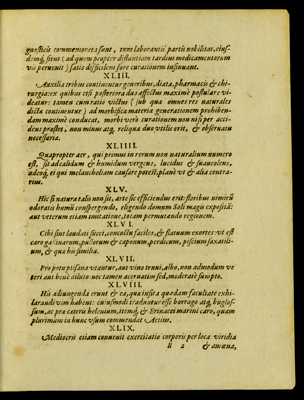 gnosticis commemorata sunt, tum laborantis partis nobilitas, eius-
demq́, situs (ad quem propter distantiam tardius medicamentorum
vis peruenit) satis difficilem fore curationem insinuant.
XLIII.
Auxilia tribus continentur generibus, diæta, pharmacis & chi-
rurgia: ex quibus etsi posteriora duo affectui maximè postulare vi-
deatur: tamen cum ratio victus (sub qua omnes res naturales
dicta continentur) ad morbifica materia generationem prohiben-
dam maximè conducat, morbi verò curationem non nisi per acci-
dens præstet, non minus atq́, reliqua duo vtilis erit, & obseruatu
necessaria.
XLIIII.
Quapropter aer, qui primus in rerum non naturalium numero
est, sit ad calidum & humidum vergens, lucidus & suaueolens,
adeoq́, ei qui melancholiam causare potest, planè vt & alia contra-
rius.
XLV.
Hic si natura talis non sit, arte sic efficiendus erit floribus nimirū
odoratis humū conspergendo, eligendo domum Soli magis expositā:
aut veterum etiam imitatione, totam permutando regionem.
XLVI.
Cibi sint laudati succi, concoctu faciles, & flatuum exortes vt est
caro gallinarum, pullorum & caponum, perdicum, piscium saxatili-
um, & quæ his similia.
XLVII.
Pro potu ptisana vtantur, aut vino tenui, albo, non admodum ve
teri aut bene diluto nec tamen aceruatim sed, moderatè sumpto.
XLVIII.
His adiungenda erunt & ea, quæ insita quadam facultate exhi-
larandi vim habent: cuiusmodi traduntur esse borrago atq́, buglos-
sum, ac præ ceteris helenium, itemq́, & Erinacei marini caro, quam
plurimum in hunc vsum commendat Aetius.
XLIX.
Mediocris etiam conuenit exercitatio corporis per loca viridia
ii 2 & amœna,